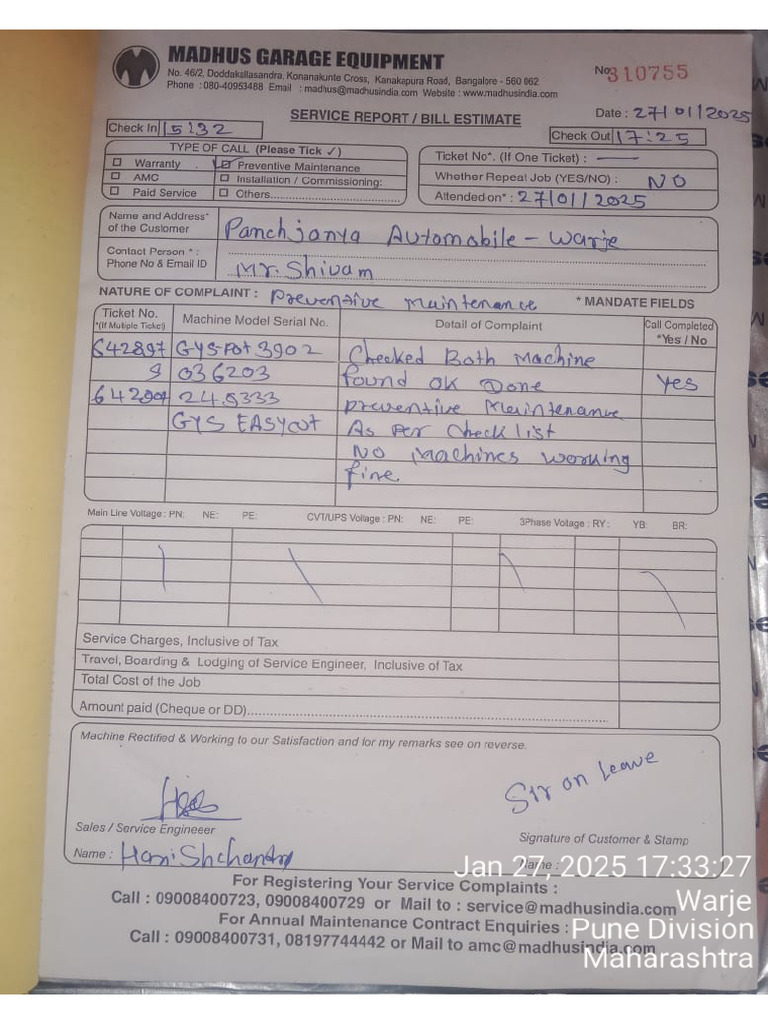 MADHUS GARAGE EQUIPMENT
No. 46/2, Doddakallasandra, Konanakunte Cross, Kanakapura Road, Bangalore - 560 062
Phone : 080-40953488 Email : madhus@madhusindia.com Website : www.madhusindia.com
No. 310755
Date : 27/01/2025
SERVICE REPORT / BILL ESTIMATE
Check In 15:32
Check Out 17:25
TYPE OF CALL (Please Tick ✓)
Warranty
Preventive Maintenance
AMC
Installation / Commissioning:
Paid Service
Others
Ticket No*. (If One Ticket) : —
Whether Repeat Job (YES/NO) : NO
Attended on* : 27/01/2025
Name and Address* of the Customer
Panchjanya Automobile - Warje
Contact Person * :
Phone No & Email ID
Mr. Shivam
NATURE OF COMPLAINT : Preventive Maintenance
* MANDATE FIELDS
Ticket No. *(If Mutiple Ticket) Machine Model Serial No. Detail of Complaint Call Completed *Yes / No
GYSPOT 3902 Checked Both Machine
036203 found ok Done Yes
24.5333 preventive Maintenance
GYS EASYCUT As Per Check list
NO Machines working
fine
Main Line Voltage : PN: NE: PE: CVT/UPS Voltage : PN: NE: PE: 3Phase Voltage : RY : YB: BR:
Service Charges, Inclusive of Tax
Travel, Boarding & Lodging of Service Engineer, Inclusive of Tax
Total Cost of the Job
Amount paid (Cheque or DD)
Machine Rectified & Working to our Satisfaction and for my remarks see on reverse.
Sir on Leave
Sales / Service Engineeer
Signature of Customer & Stamp
Name : Harishchandra
Name :
For Registering Your Service Complaints :
Call : 09008400723, 09008400729 or Mail to : service@madhusindia.com
For Annual Maintenance Contract Enquiries :
Call : 09008400731, 08197744442 or Mail to amc@madhusindia.com
Jan 27, 2025 17:33:27
Warje
Pune Division
Maharashtra